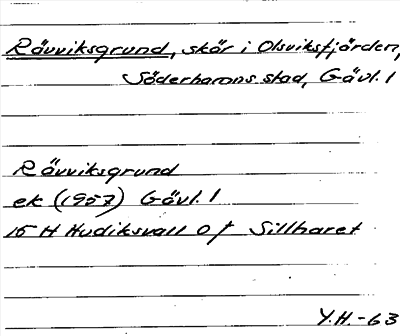 Rävviksgrund, skär i Olsviksfjärden,
Söderhamns stad, Gävl. l
Rävviksgrund
ek (1957) Gävl. l
15 H Hudiksvall 0 f Sillharet
Y.H.-63